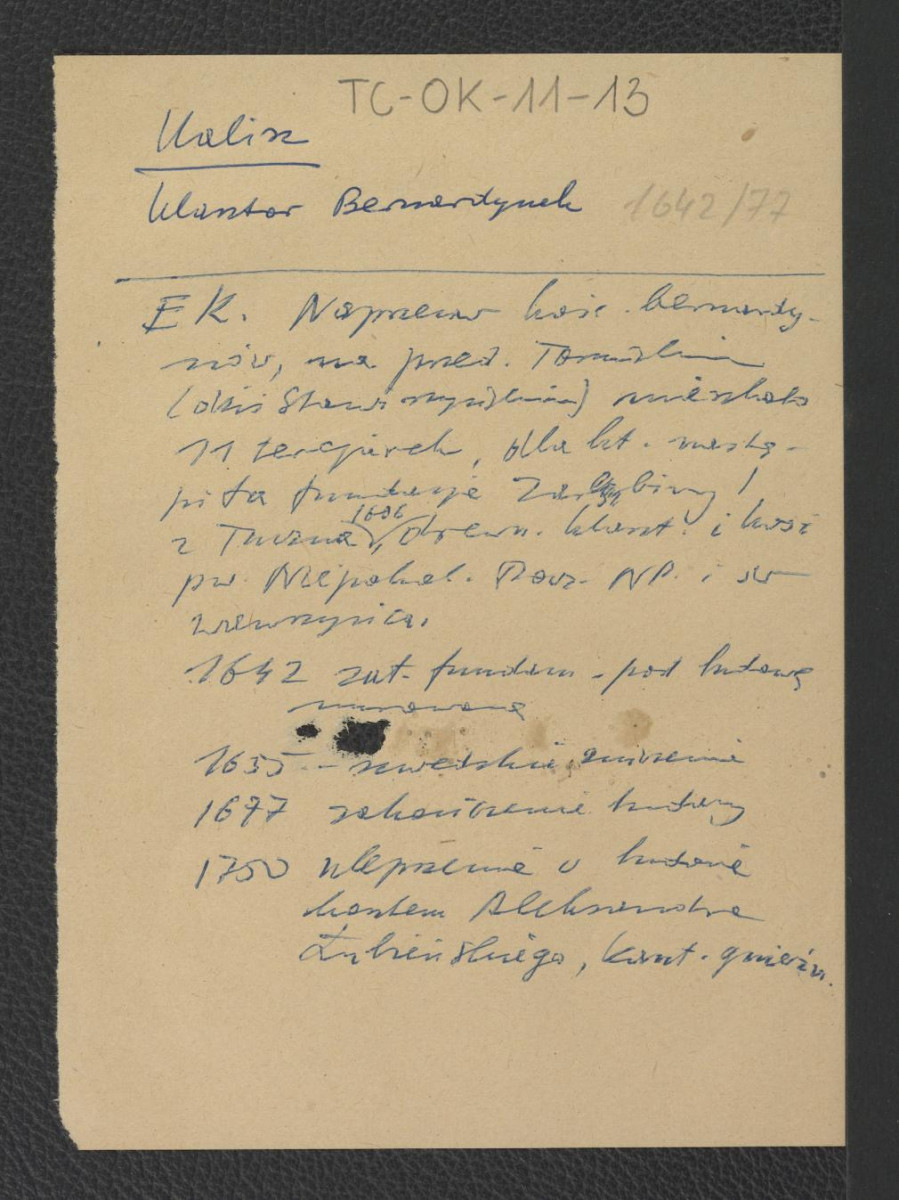 TC-OK-11-13
Kalisz
Klasztor Bernardynek 1642/77
EK. Naprzeciw kośc. bernardy-
nów, na przed. Toruńskim
(dziś Stawiszyńskim) mieszkało
11 tercjarek, dla kt. nastą-
piła fundacja
z Tuczna 1606 drewn. klaszt. i kość
pw. Niepokal. Pocz. NP. i św
Wawrzyńca.
1642 zał. fundam. pod budowę
murowaną
1655 - szwedzkie zniszczenia
1677 zakończenie budowy
1750 ulepszenia v budowie
kosztem Aleksandra
Łubieńskiego, kant. gnieźn.